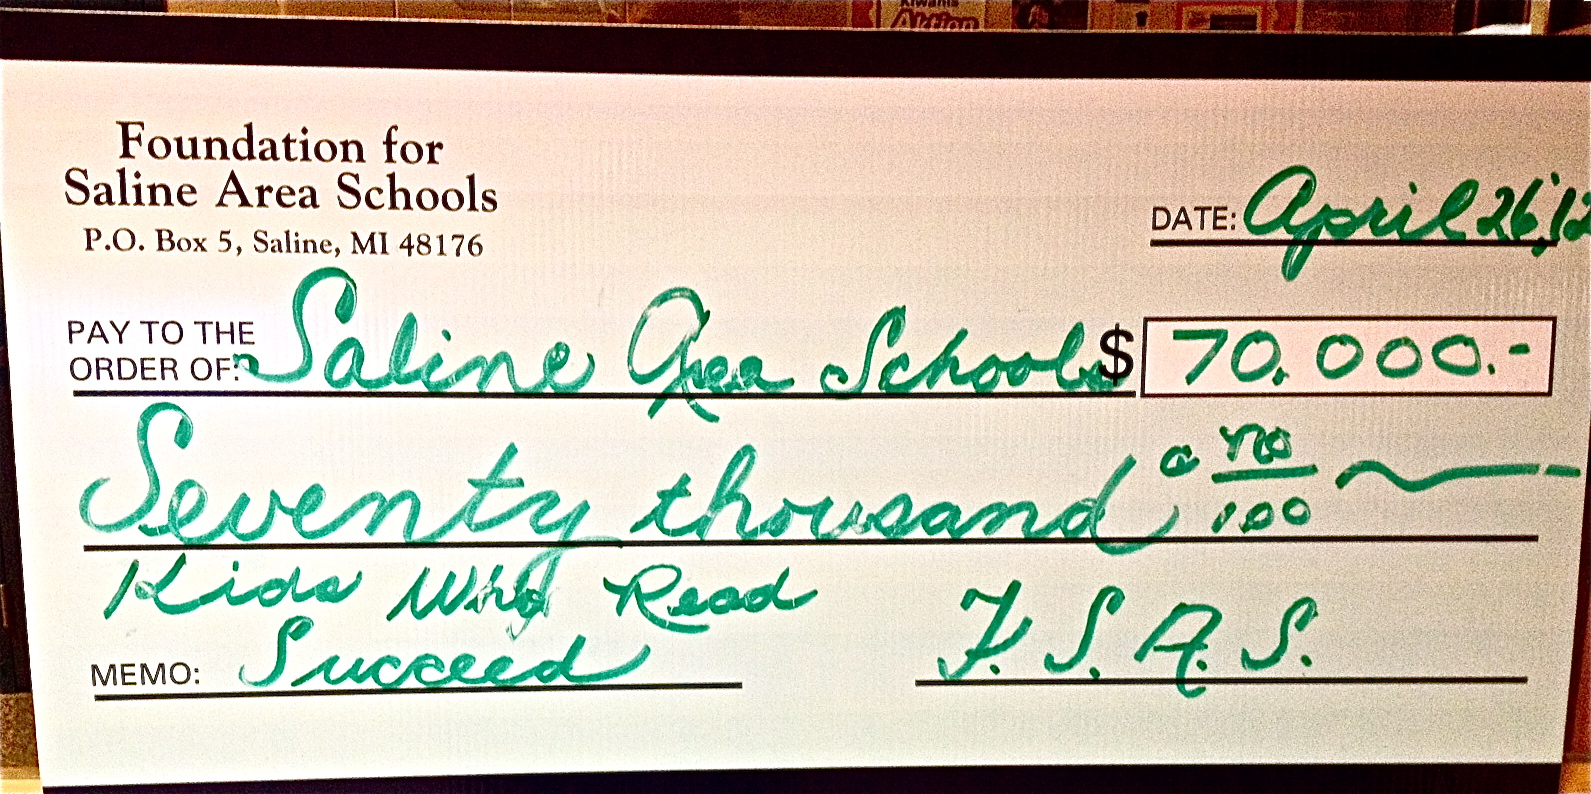 Kiwanis
Aktion
Foundation for
Saline Area Schools
P.O. Box 5, Saline, MI 48176
DATE: April 26, '12
PAY TO THE
ORDER OF: Saline Area Schools $ 70,000.-
Seventy thousand & no/100
Kids Who Read
MEMO: Succeed
F. S. A. S.